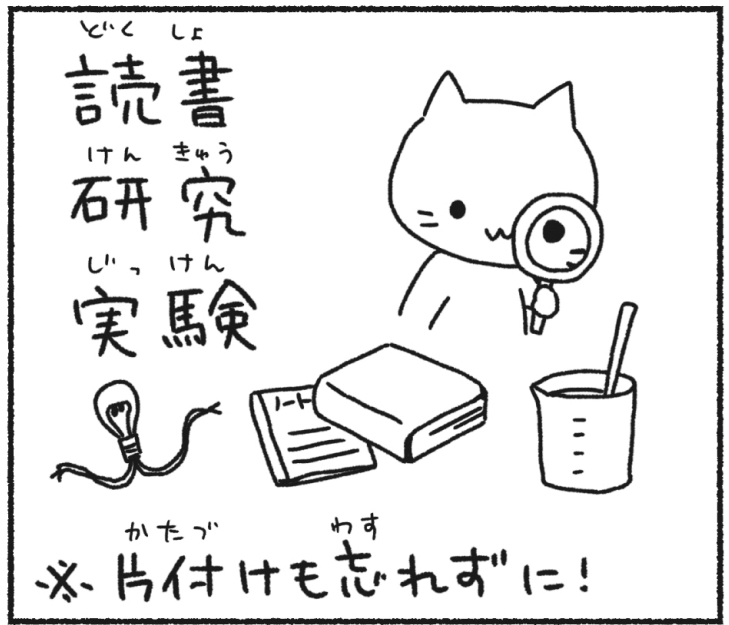 どくしょ
読書
けんきゅう
研究
じっけん
実験
ノート
かたづ わす
※片付けも忘れずに!